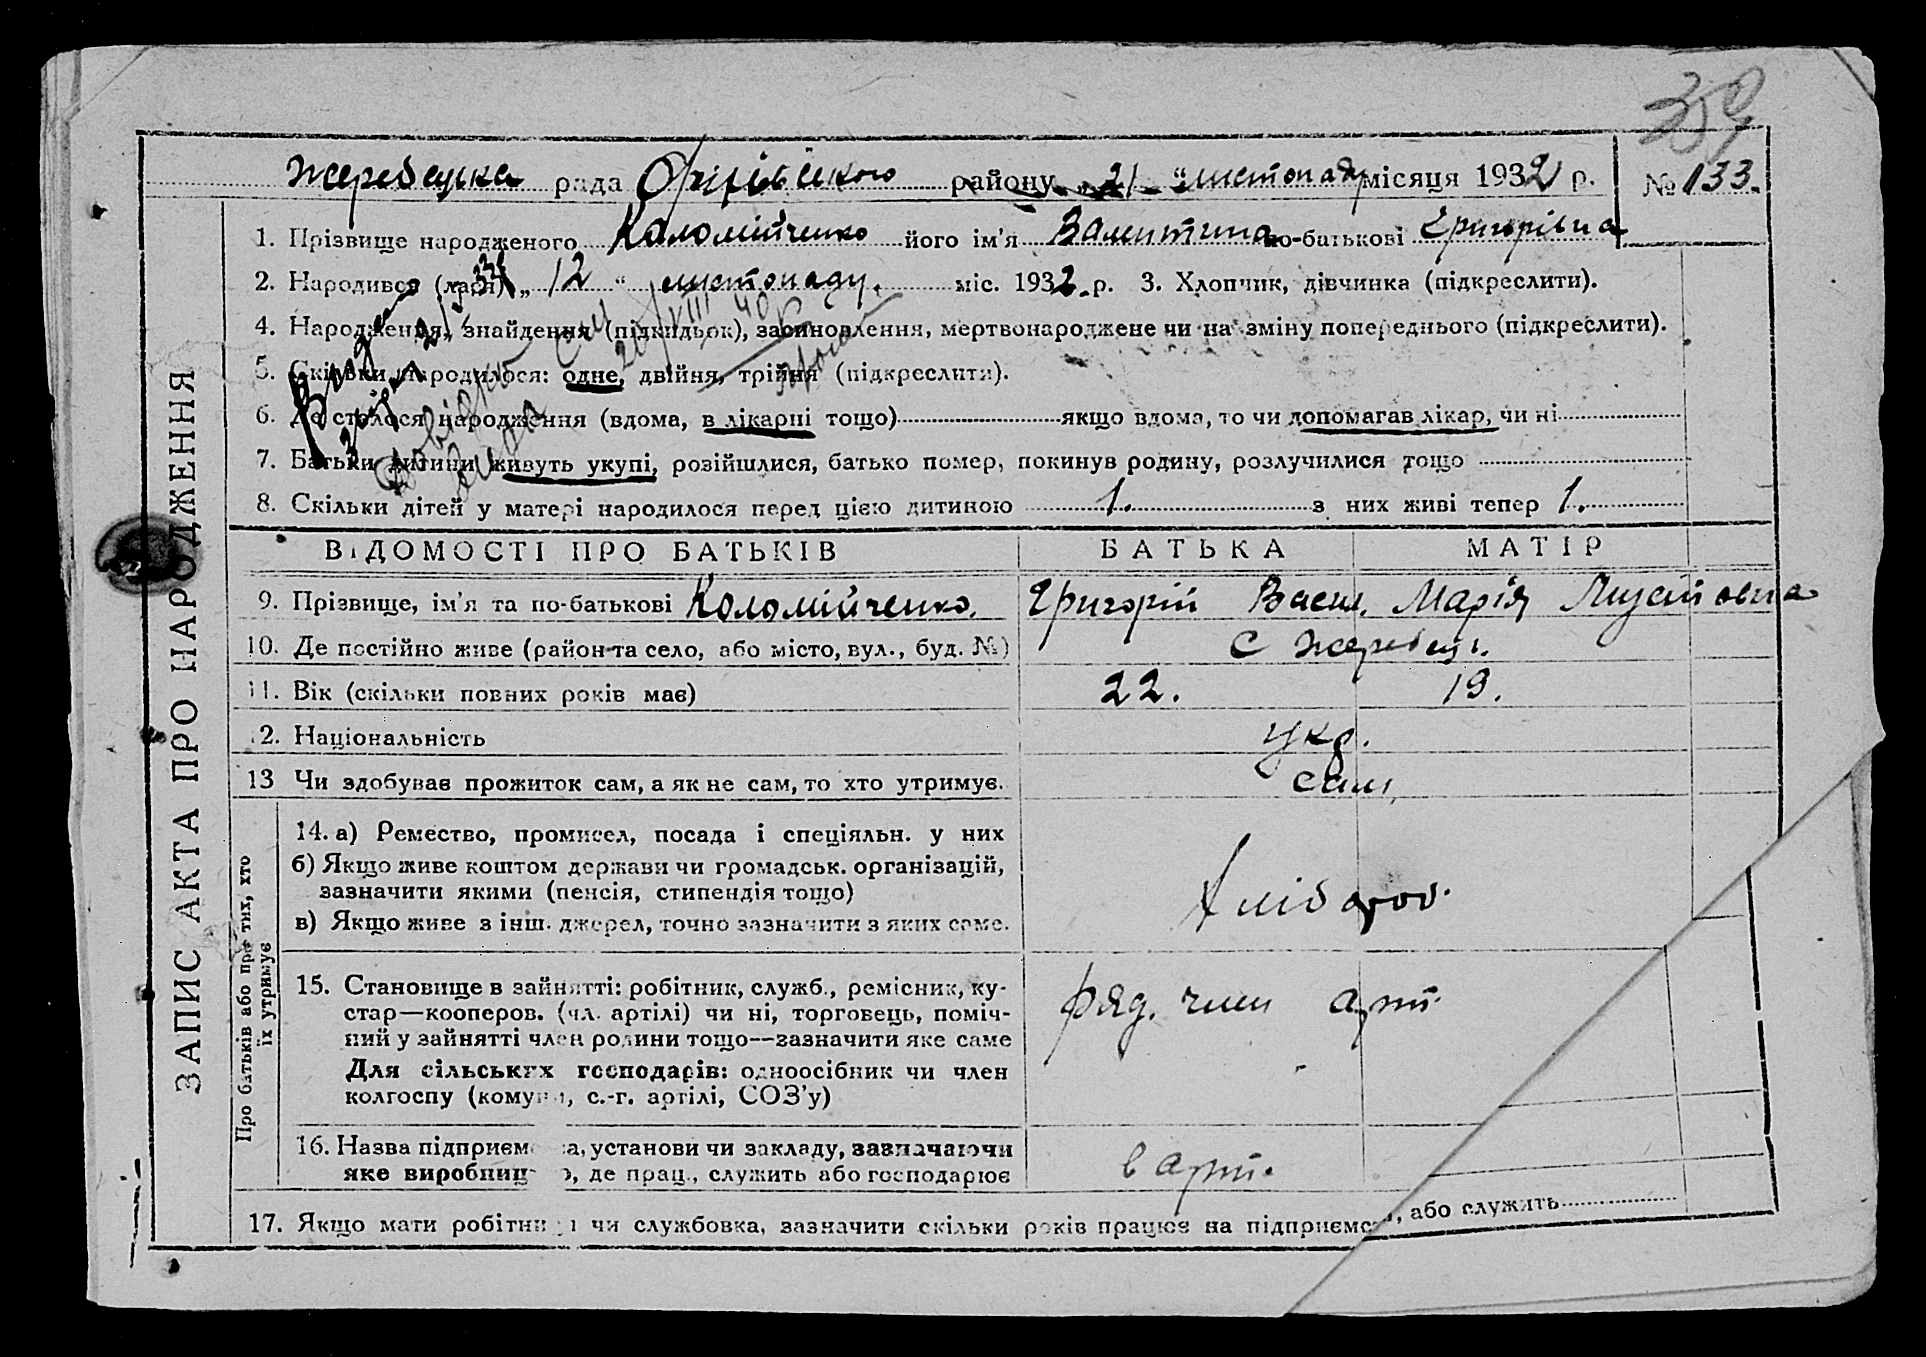 359
Жеребецька рада Оріхівського району „ 21 “ листопаду місяця 1932 р. № 133.
1. Прізвище народженого Коломійченко його ім’я Валентина по-батькові Григорівна
2. Народився (лася) „ 12 “ листопаду. міс. 1932 р. 3. Хлопчик, дівчинка (підкреслити).
4. Народження, знайдення (підкидьок), засиновлення, мертвонароджене чи на зміну попереднього (підкреслити).
5. Скільки народилося: одне, двійня, трійня (підкреслити).
6. Де сталося народження (вдома, в лікарні тощо) якщо вдома, то чи допомагав лікар, чи ні
7. Батьки дитини живуть укупі, розійшлися, батько помер, покинув родину, розлучилися тощо
8. Скільки дітей у матері народилося перед цією дитиною 1. з них живі тепер 1.
ЗАПИС АКТА ПРО НАРОДЖЕННЯ
ВІДОМОСТІ ПРО БАТЬКІВ БАТЬКА МАТІР
9. Прізвище, ім’я та по-батькові Коломійченко. Григорій Васил. Марія Мусійовна
10. Де постійно живе (район та село, або місто, вул., буд. №) с Жеребець.
11. Вік (скільки повних років має) 22. 19.
12. Національність укр.
13 Чи здобував прожиток сам, а як не сам, то хто утримує. сам,
Про батьків або про тих, хто
їх утримує
14. а) Ремество, промисел, посада і спеціяльн. у них
б) Якщо живе коштом держави чи громадськ. організацій,
зазначити якими (пенсія, стипендія тощо)
в) Якщо живе з інш. джерел, точно зазначити з яких саме.
15. Становище в зайнятті: робітник, служб., ремісник, ку-
стар—кооперов. (чл. артілі) чи ні, торговець, поміч-
ний у зайнятті член родини тощо—зазначити яке саме
ряд. член арт.
Для сільських господарів: одноосібник чи член
колгоспу (комуни, с.-г. артілі, СОЗ’у)
16. Назва підприємства, установи чи закладу, зазначаючи
яке виробництво, де прац., служить або господарює
в арт.
17. Якщо мати робітниця чи службовка, зазначити скільки років працює на підприємстві, або служить